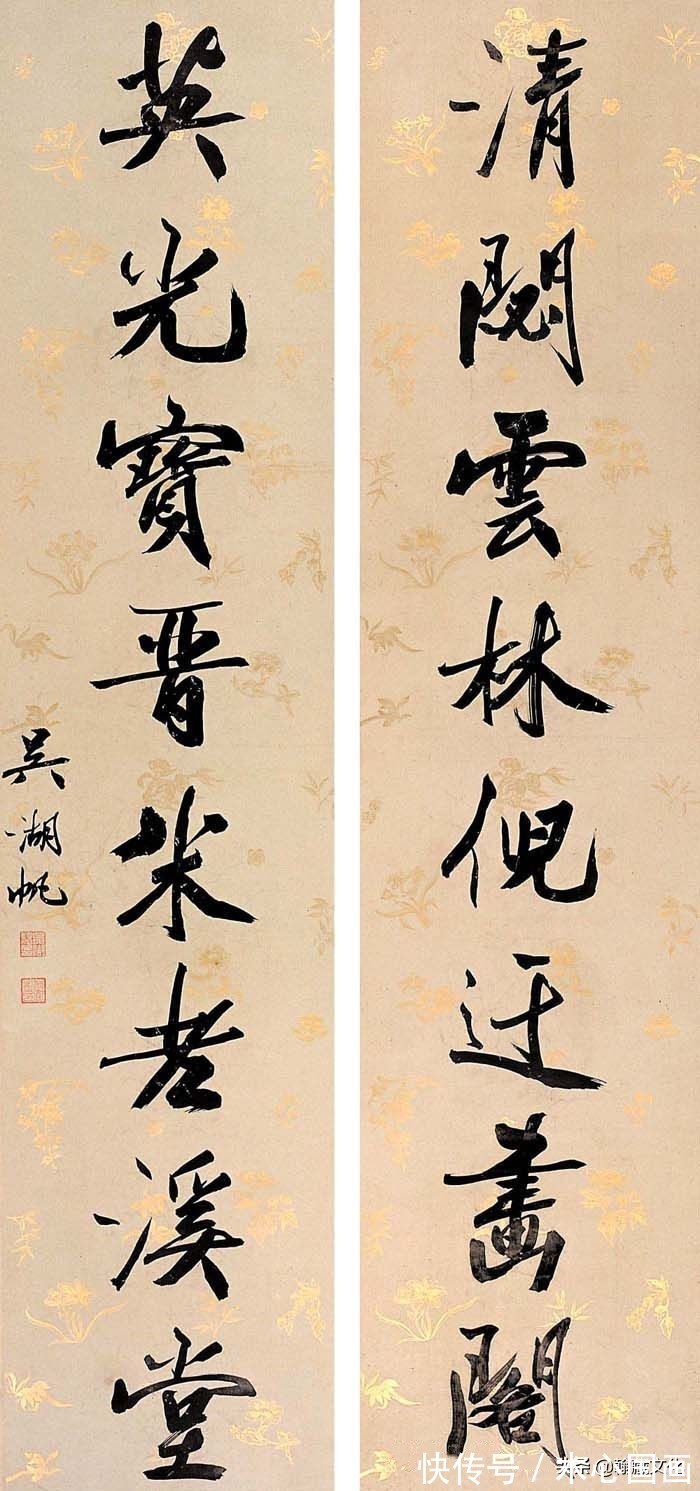 清閟雲林倪迂畫閣
英光寶晋米老溪堂
吳湖帆
快传号 / 心国画